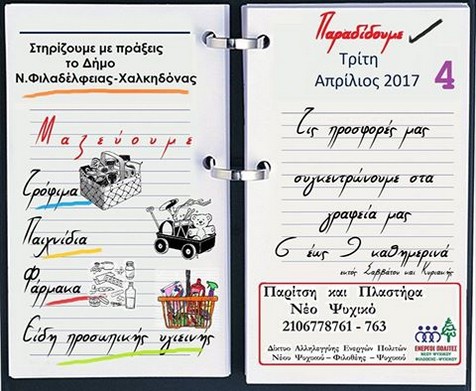 Στηρίζουμε με πράξεις
το Δήμο
Ν.Φιλαδέλφειας-Χαλκηδόνας
Μαζεύουμε
Τρόφιμα
Παιχνίδια
Φάρμακα
Είδη προσωπικής υγιεινής
Παραδίδουμε
Τρίτη
Απρίλιος 2017
4
Τις προσφορές μας
συγκεντρώνουμε στα
γραφεία μας
6 έως 9 καθημερινά
εκτός Σαββάτου και Κυριακής
Παρίτση και Πλαστήρα
Νέο Ψυχικό
2106778761 - 763
Δίκτυο Αλληλεγγύης Ενεργών Πολιτών
Νέου Ψυχικού - Φιλοθέης - Ψυχικού
ΕΝΕΡΓΟΙ ΠΟΛΙΤΕΣ
ΝΕΟΥ ΨΥΧΙΚΟΥ
ΦΙΛΟΘΕΗΣ-ΨΥΧΙΚΟΥ